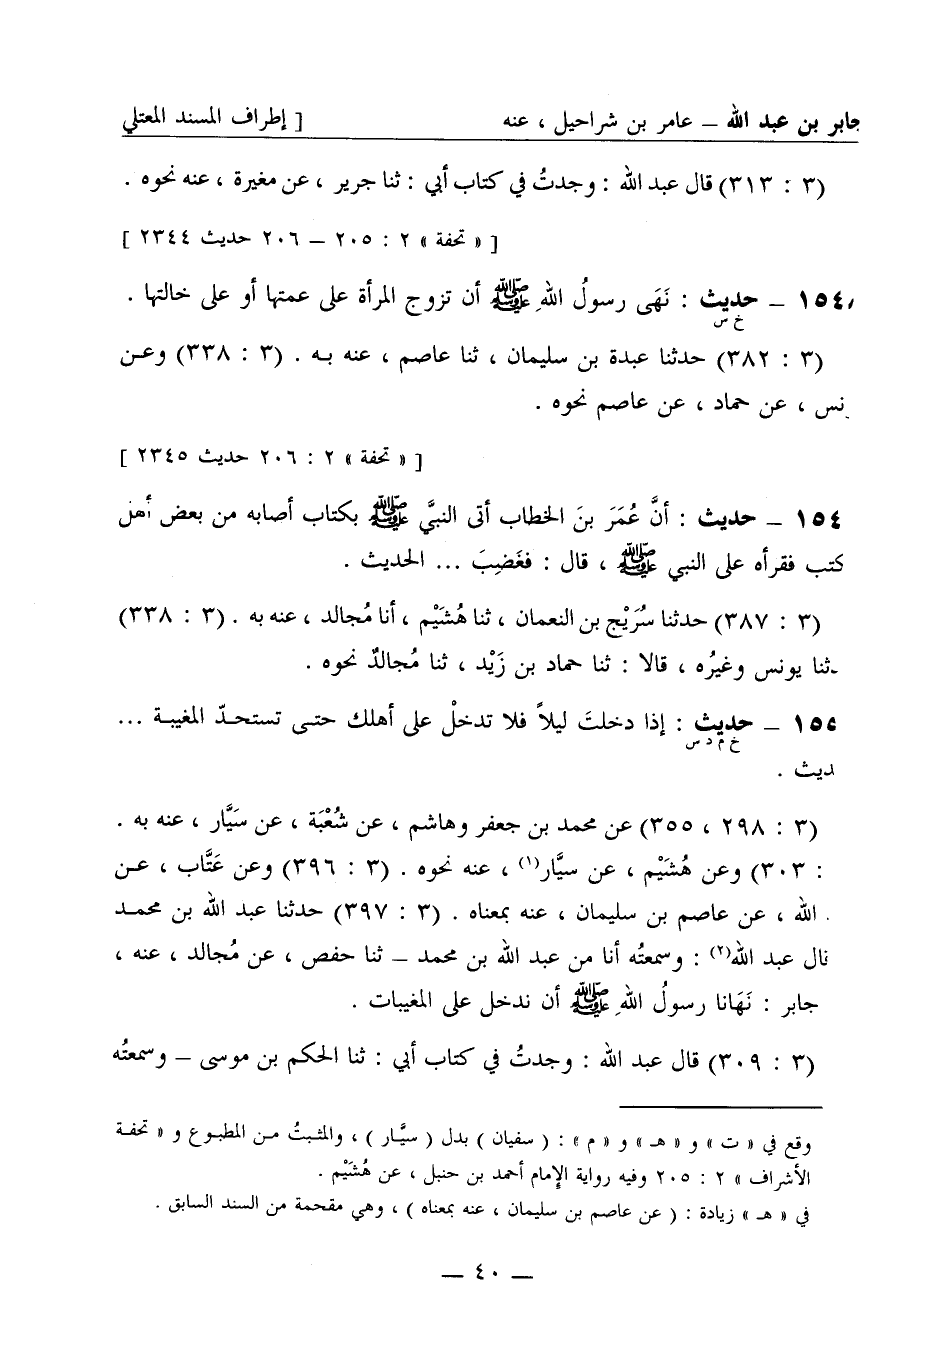 جابر بن عبد الله – عامر بن شراحيل ، عنه [ إطراف المسند المعتلي
(٣ : ٣١٣) قال عبد الله : وجدتُ في كتاب أبي : ثنا جرير ، عن مغيرة ، عنه نحوه .
[ « تحفة » ٢ : ٢٠٥ – ٢٠٦ حديث ٢٣٤٤ ]
١٥٤ – حديث : نَهَى رسولُ اللهِ ﷺ أن تزوج المرأة على عمتها أو على خالتها .
خ س
(٣ : ٣٨٢) حدثنا عبدة بن سليمان ، ثنا عاصم ، عنه به . (٣ : ٣٣٨) وعن
نس ، عن حماد ، عن عاصم نحوه .
[ « تحفة » ٢ : ٢٠٦ حديث ٢٣٤٥ ]
١٥٤ – حديث : أنَّ عُمَرَ بنَ الخطاب أتى النبيَّ ﷺ بكتاب أصابه من بعض أهل
كتب فقرأه على النبي ﷺ ، قال : فغَضِبَ ... الحديث .
(٣ : ٣٨٧) حدثنا سُرَيْج بن النعمان ، ثنا هُشَيْم ، أنا مُجالد ، عنه به . (٣ : ٣٣٨)
ـثنا يونس وغيرُه ، قالا : ثنا حماد بن زَيْد ، ثنا مُجالدٌ نحوه .
١٥٥ – حديث : إذا دخلتَ ليلاً فلا تدخلْ على أهلك حتى تستحدّ المغيبة ...
خ م د س
ديث .
(٣ : ٢٩٨ ، ٣٥٥) عن محمد بن جعفر وهاشم ، عن شُعْبَة ، عن سَيَّار ، عنه به .
: ٣٠٣) وعن هُشَيْم ، عن سيَّار(١) ، عنه نحوه . (٣ : ٣٩٦) وعن عَتَّاب ، عن
. الله ، عن عاصم بن سليمان ، عنه بمعناه . (٣ : ٣٩٧) حدثنا عبد الله بن محمد
نال عبد الله(٢) : وسمعتُه أنا من عبد الله بن محمد – ثنا حفص ، عن مُجالد ، عنه ،
جابر : نَهَانا رسولُ اللهِ ﷺ أن ندخل على المغيبات .
(٣ : ٣٠٩) قال عبد الله : وجدتُ في كتاب أبي : ثنا الحكم بن موسى – وسمعتُه
وقع في « ت » و « هـ » و « م » : ( سفيان ) بدل ( سيَّار ) ، والمثبتُ من المطبوع و « تحفة
الأشراف » ٢ : ٢٠٥ وفيه رواية الإمام أحمد بن حنبل ، عن هُشَيْم .
في « هـ » زيادة : ( عن عاصم بن سليمان ، عنه بمعناه ) ، وهي مقحمة من السند السابق .
– ٤٠ –